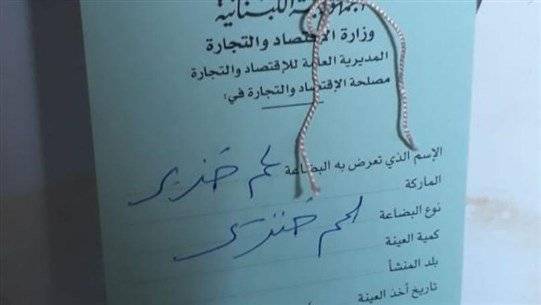 الجمهورية اللبنانية
وزارة الإقتصاد والتجارة
المديرية العامة للإقتصاد والتجارة
مصلحة الإقتصاد والتجارة في:
الإسم الذي تعرض به البضاعة لحم خنزير
الماركة
نوع البضاعة لحم خنزير
كمية العينة
بلد المنشأ
تاريخ أخذ العينة